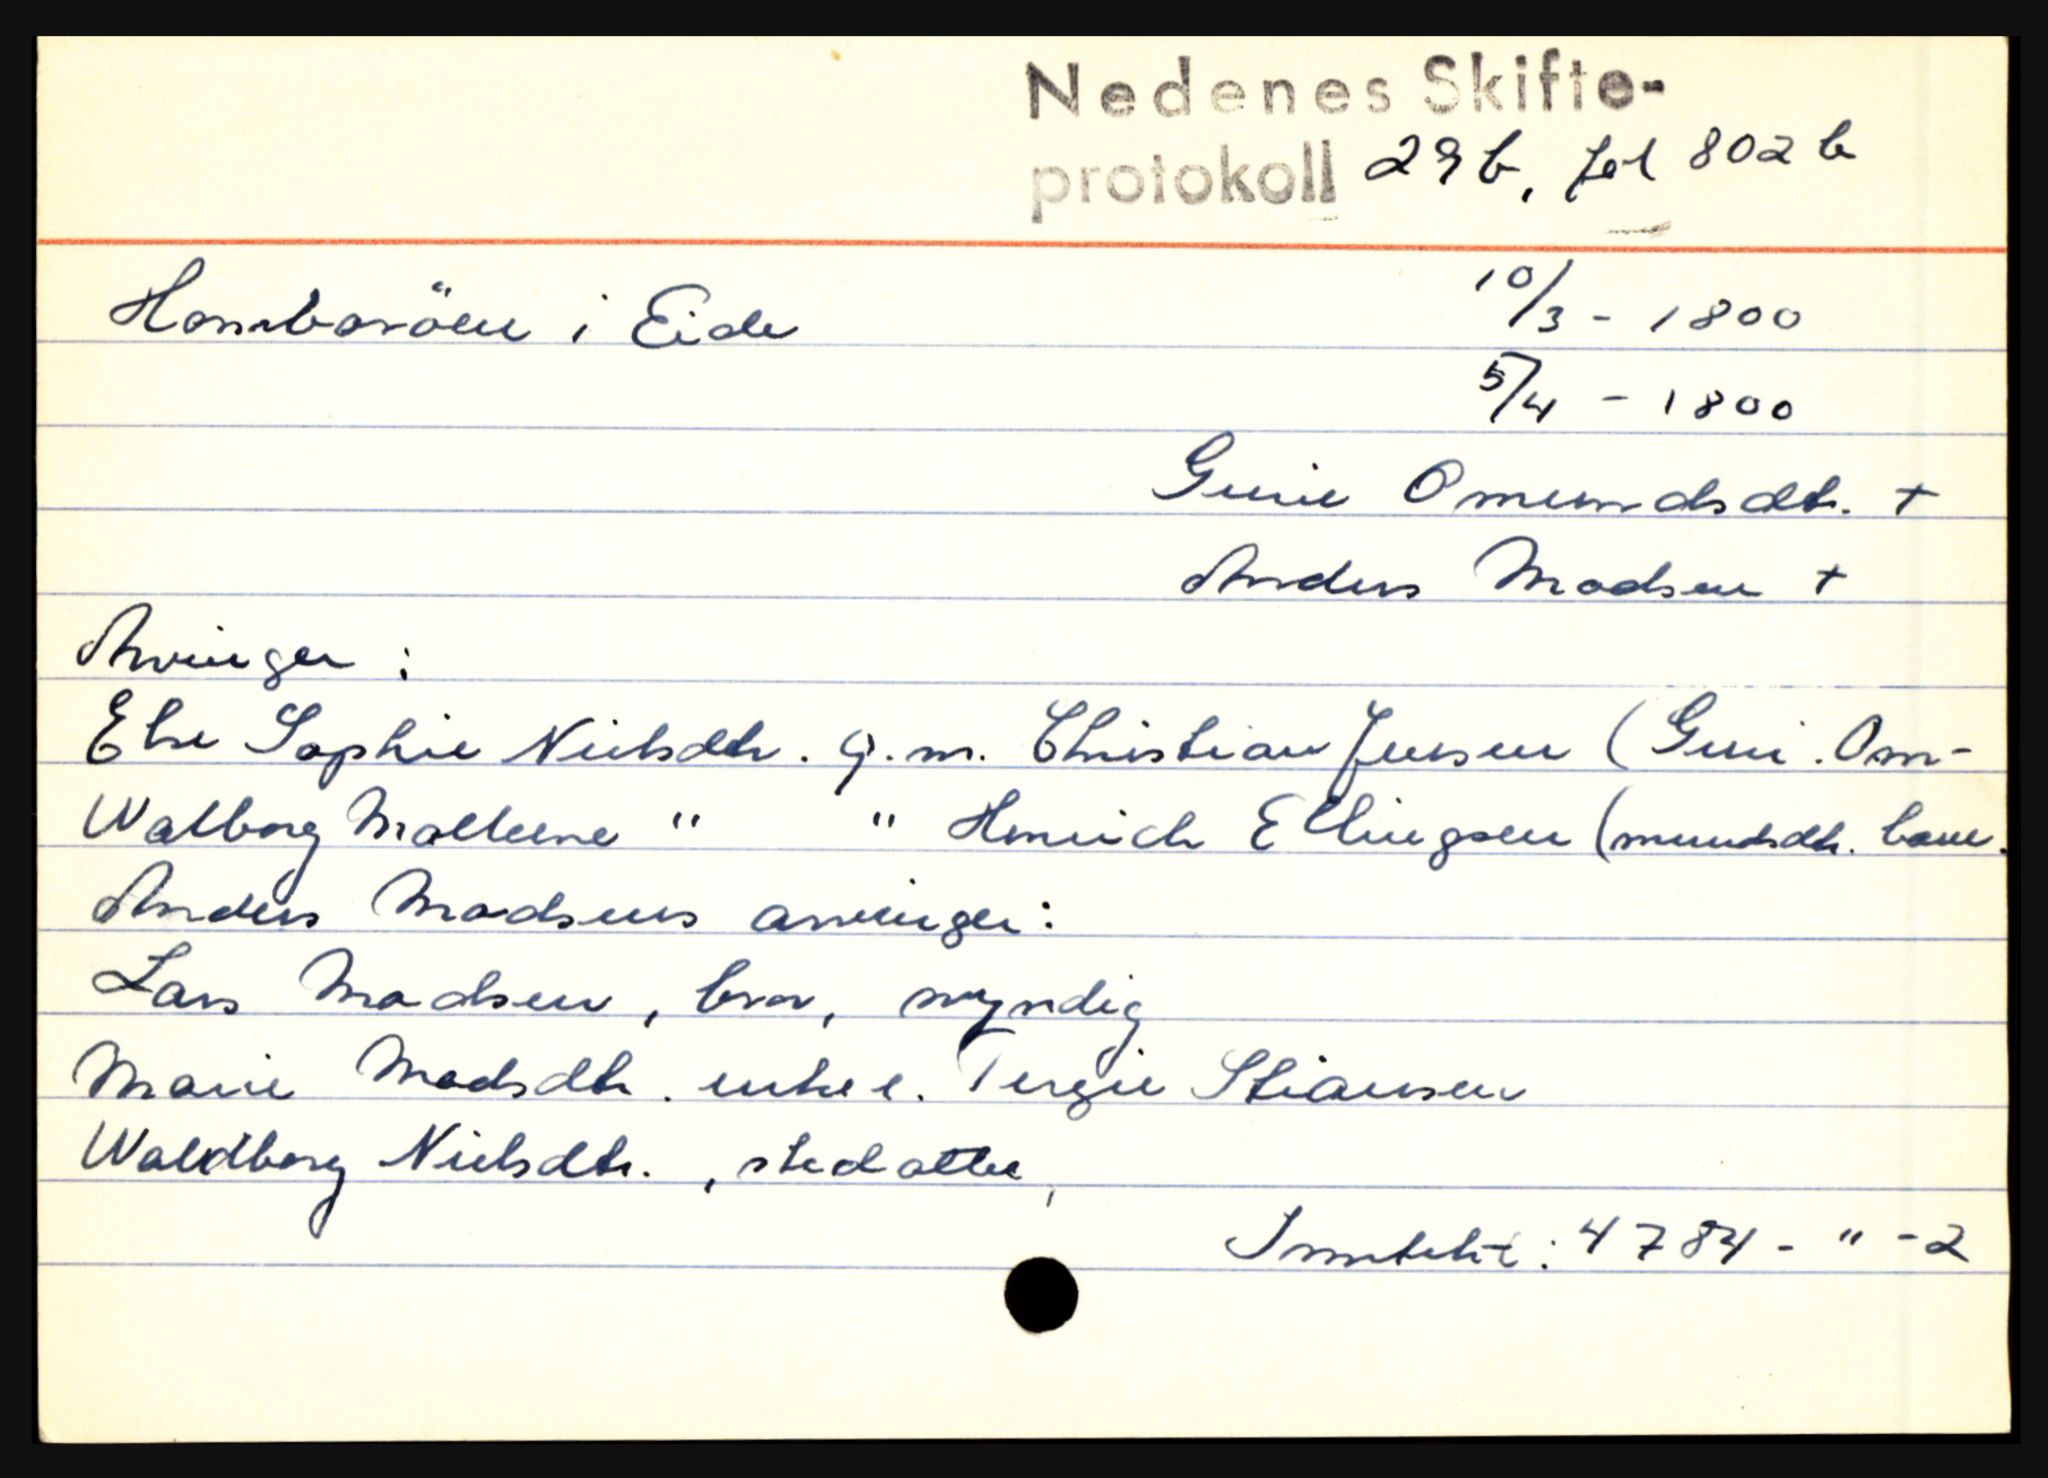 Nedenes Skifte-
protokoll 29b, fol 802 b
Homborøen i Eide 10/3 - 1800
5/4 - 1800
Gurie Omundsdtr. +
Anders Madsen +
Arvinger :
Else Sophie Nielsdtr. g. m. Christian Jensen (Guri. Om-
Walborg Malleene " " Henrich Ellingsen (mundsdtr. barn.
Anders Madsens arvinger:
Lars Madsen, bror, myndig
Marie Madsdtr. enke e. Tergie Stiansen
Waldborg Nielsdtr. , stedatter,
Inntekt: 4784 - " - 2